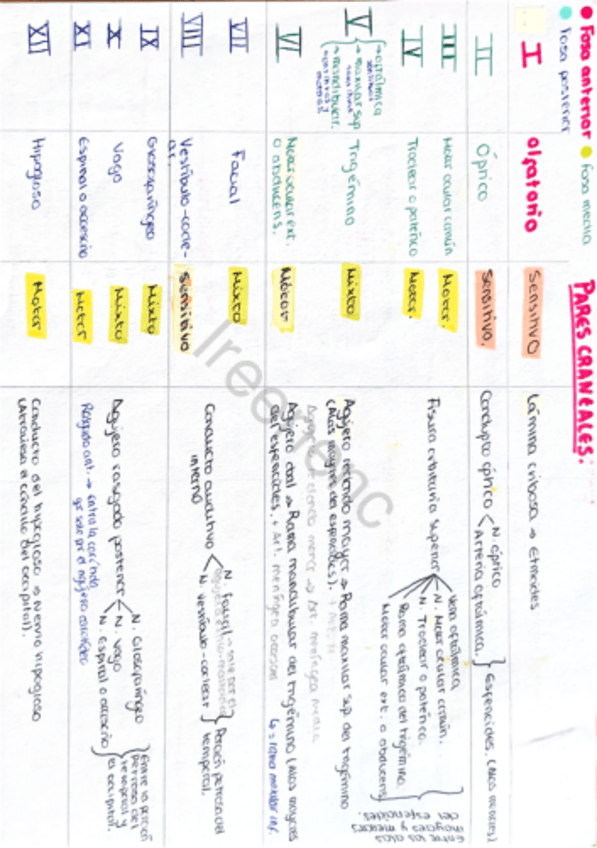 PARES CRANEALES:
Fosa anterior
Fosa media
Fosa posterior
I
Olfatorio
Sensitivo
Lámina cribosa → Etmoides
II
Óptico
Sensitivo.
Conducto óptico < N. óptico
Arteria oftálmica.
} Esfenoides. (Alas menores)
III
Motor ocular común
Motor.
IV
Troclear o patético
Motor.
Fisura orbitaria superior
Vena oftálmica
N. Motor ocular común.
N. Troclear o patético.
Rama oftálmica del trigémino.
Motor ocular ext. o abducens
Entre las alas
mayores y menores
del esfenoides.
V
→ oftálmica
sensitiva
→ maxilar sup.
sensitiva
→ mandibular.
Trigémino
Mixto
Agujero redondo mayor → Rama maxilar sup. del trigémino
(Alas mayores del esfenoides).
Agujero redondo menor → Art. meníngea media
Agujero oval → Rama mandibular del trigémino (Alas mayores
del esfenoides. + Art. meníngea
↳ = rama maxilar inf.
VI
Motor ocular ext.
o abducens.
Motor.
VII
Facial
Mixto
VIII
Vestíbulo-cocle-
ar.
Sensitivo
Conducto auditivo
interno
N. facial → sale por el
N. Vestíbulo-coclear
} Porción petrosa del
temporal.
IX
Glosofaríngeo
Mixto
X
Vago
Mixto
XI
Espinal o accesorio
Motor
Agujero rasgado posterior
N. Glosofaríngeo
N. vago
N. Espinal o accesorio
Entre la porción
petrosa del
temporal y
el occipital.
Rasgado ant. → entra la carótida
que sale por el agujero carotídeo
XII
Hipogloso
Motor
Conducto del hipogloso → Nervio hipogloso
(Atraviesa el cóndilo del occipital).